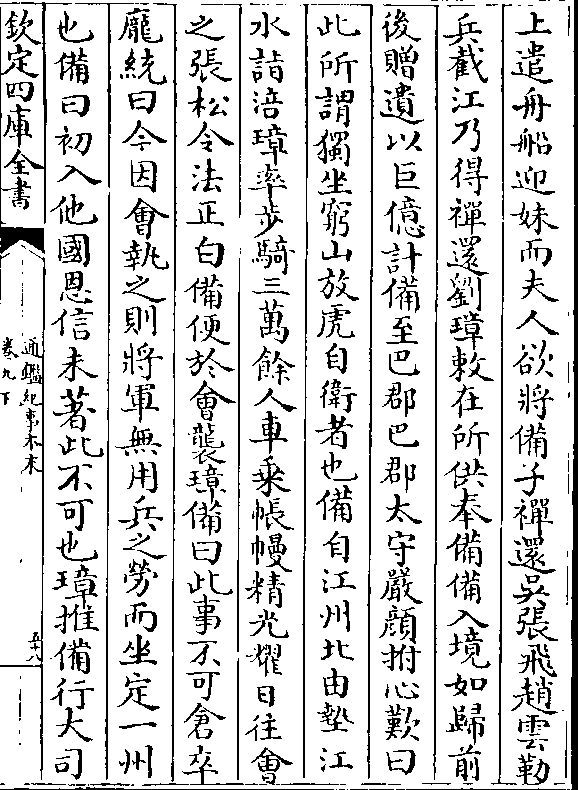 上遣舟船迎妹而夫人欲將備子禪還吳張飛趙雲勒
兵截江乃得禪還劉璋敕在所供奉備備入境如歸前
後贈遺以巨億計備至巴郡巴郡太守嚴顔拊心歎曰
此所謂獨坐窮山放虎自衛者也備自江州北由墊江
水詣涪璋率步騎三萬餘人車乘帳幔精光耀日往會
之張松令法正白備便於會襲璋備曰此事不可倉卒
龐統曰今因會執之則將軍無用兵之勞而坐定一州
也備曰初入他國恩信未著此不可也璋推備行大司
欽定四庫全書
通鑑紀事本末
卷九下
五十八